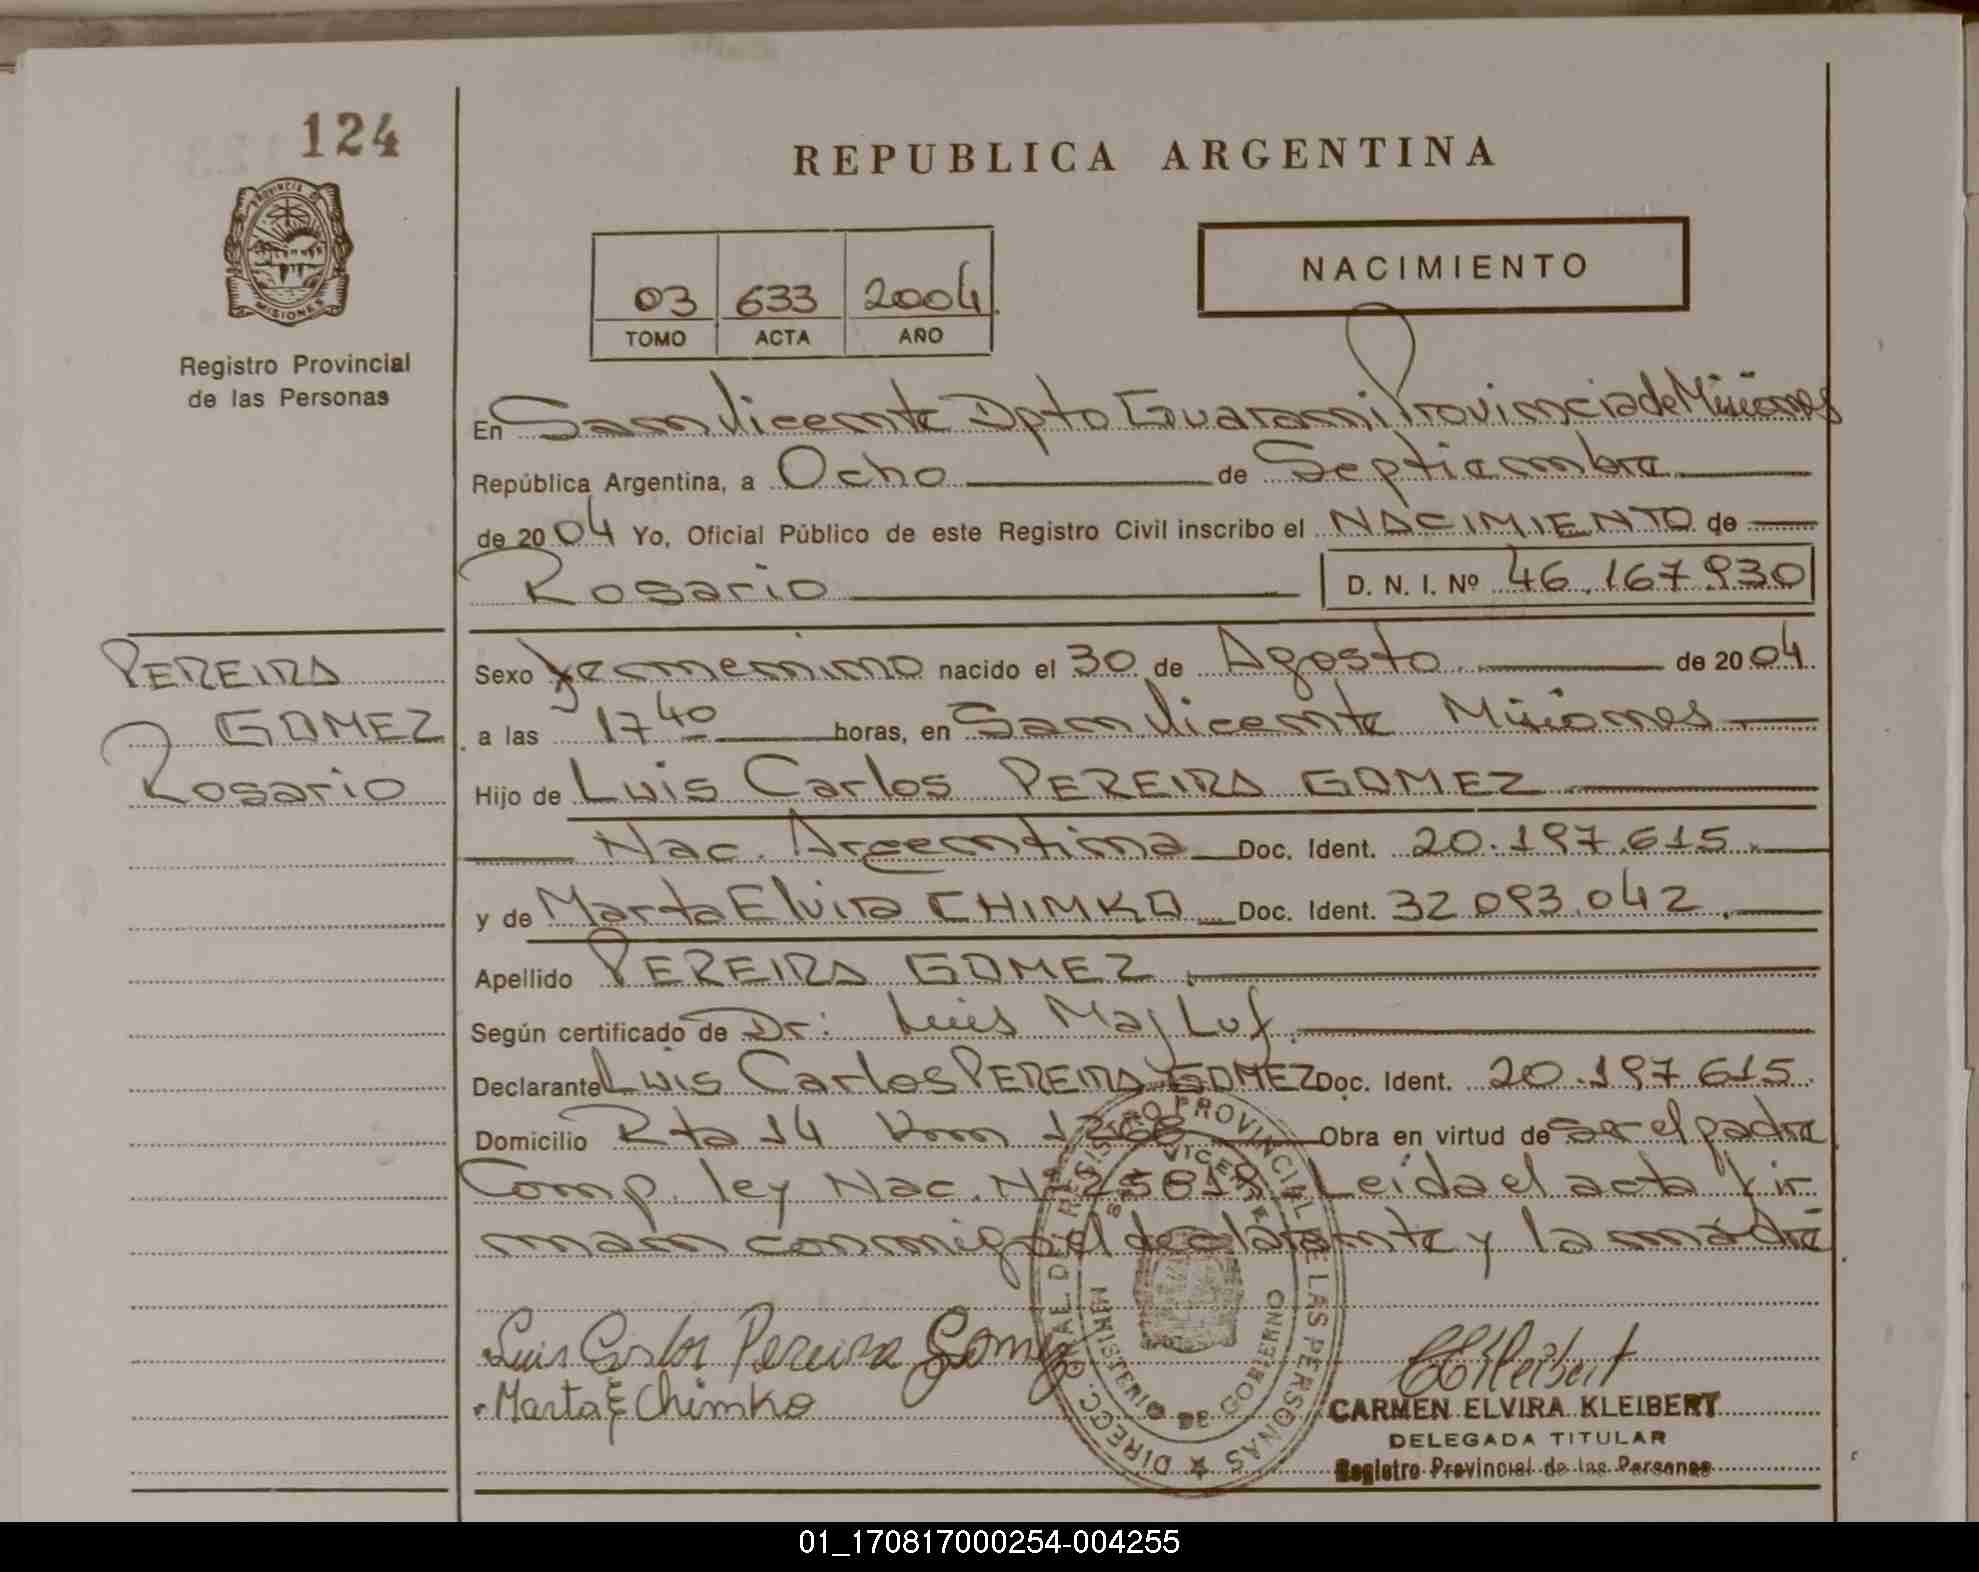 124
REPUBLICA ARGENTINA
NACIMIENTO
03 633 2004
TOMO ACTA AÑO
PROVINCIA DE
MISIONES
Registro Provincial
de las Personas
En San Vicente Dpto Guarani Provincia de Misiones
República Argentina, a Ocho de Septiembre
de 2004 Yo, Oficial Público de este Registro Civil inscribo el NACIMIENTO de
Rosario D. N. I. Nº 46.167.930
PEREIRA
GOMEZ
Rosario
Sexo femenino nacido el 30 de Agosto de 2004
a las 17 40 horas, en San Vicente Misiones
Hijo de Luis Carlos PEREIRA GOMEZ
Nac. Argentina Doc. Ident. 20.197.615
y de Marta Elvira CHIMKO Doc. Ident. 32.093.042
Apellido PEREIRA GOMEZ
Según certificado de Dr: Luis Maj Luf
Declarante Luis Carlos PEREIRA GOMEZ Doc. Ident. 20.197.615
Domicilio Rta 14 Km Obra en virtud de ser el padre
Comp. ley Nac. Nº 25818 Leida el acta fir
man conmigo el declarante y la madre
Luis Carlos Pereira Gomez
Marta E Chimko
DIRECC. GRAL. DEL REGISTRO PROVINCIAL DE LAS PERSONAS
SAN VICENTE
MINISTERIO DE GOBIERNO
CEKleibert
CARMEN ELVIRA KLEIBERT
DELEGADA TITULAR
Registro Provincial de las Personas
01_170817000254-004255